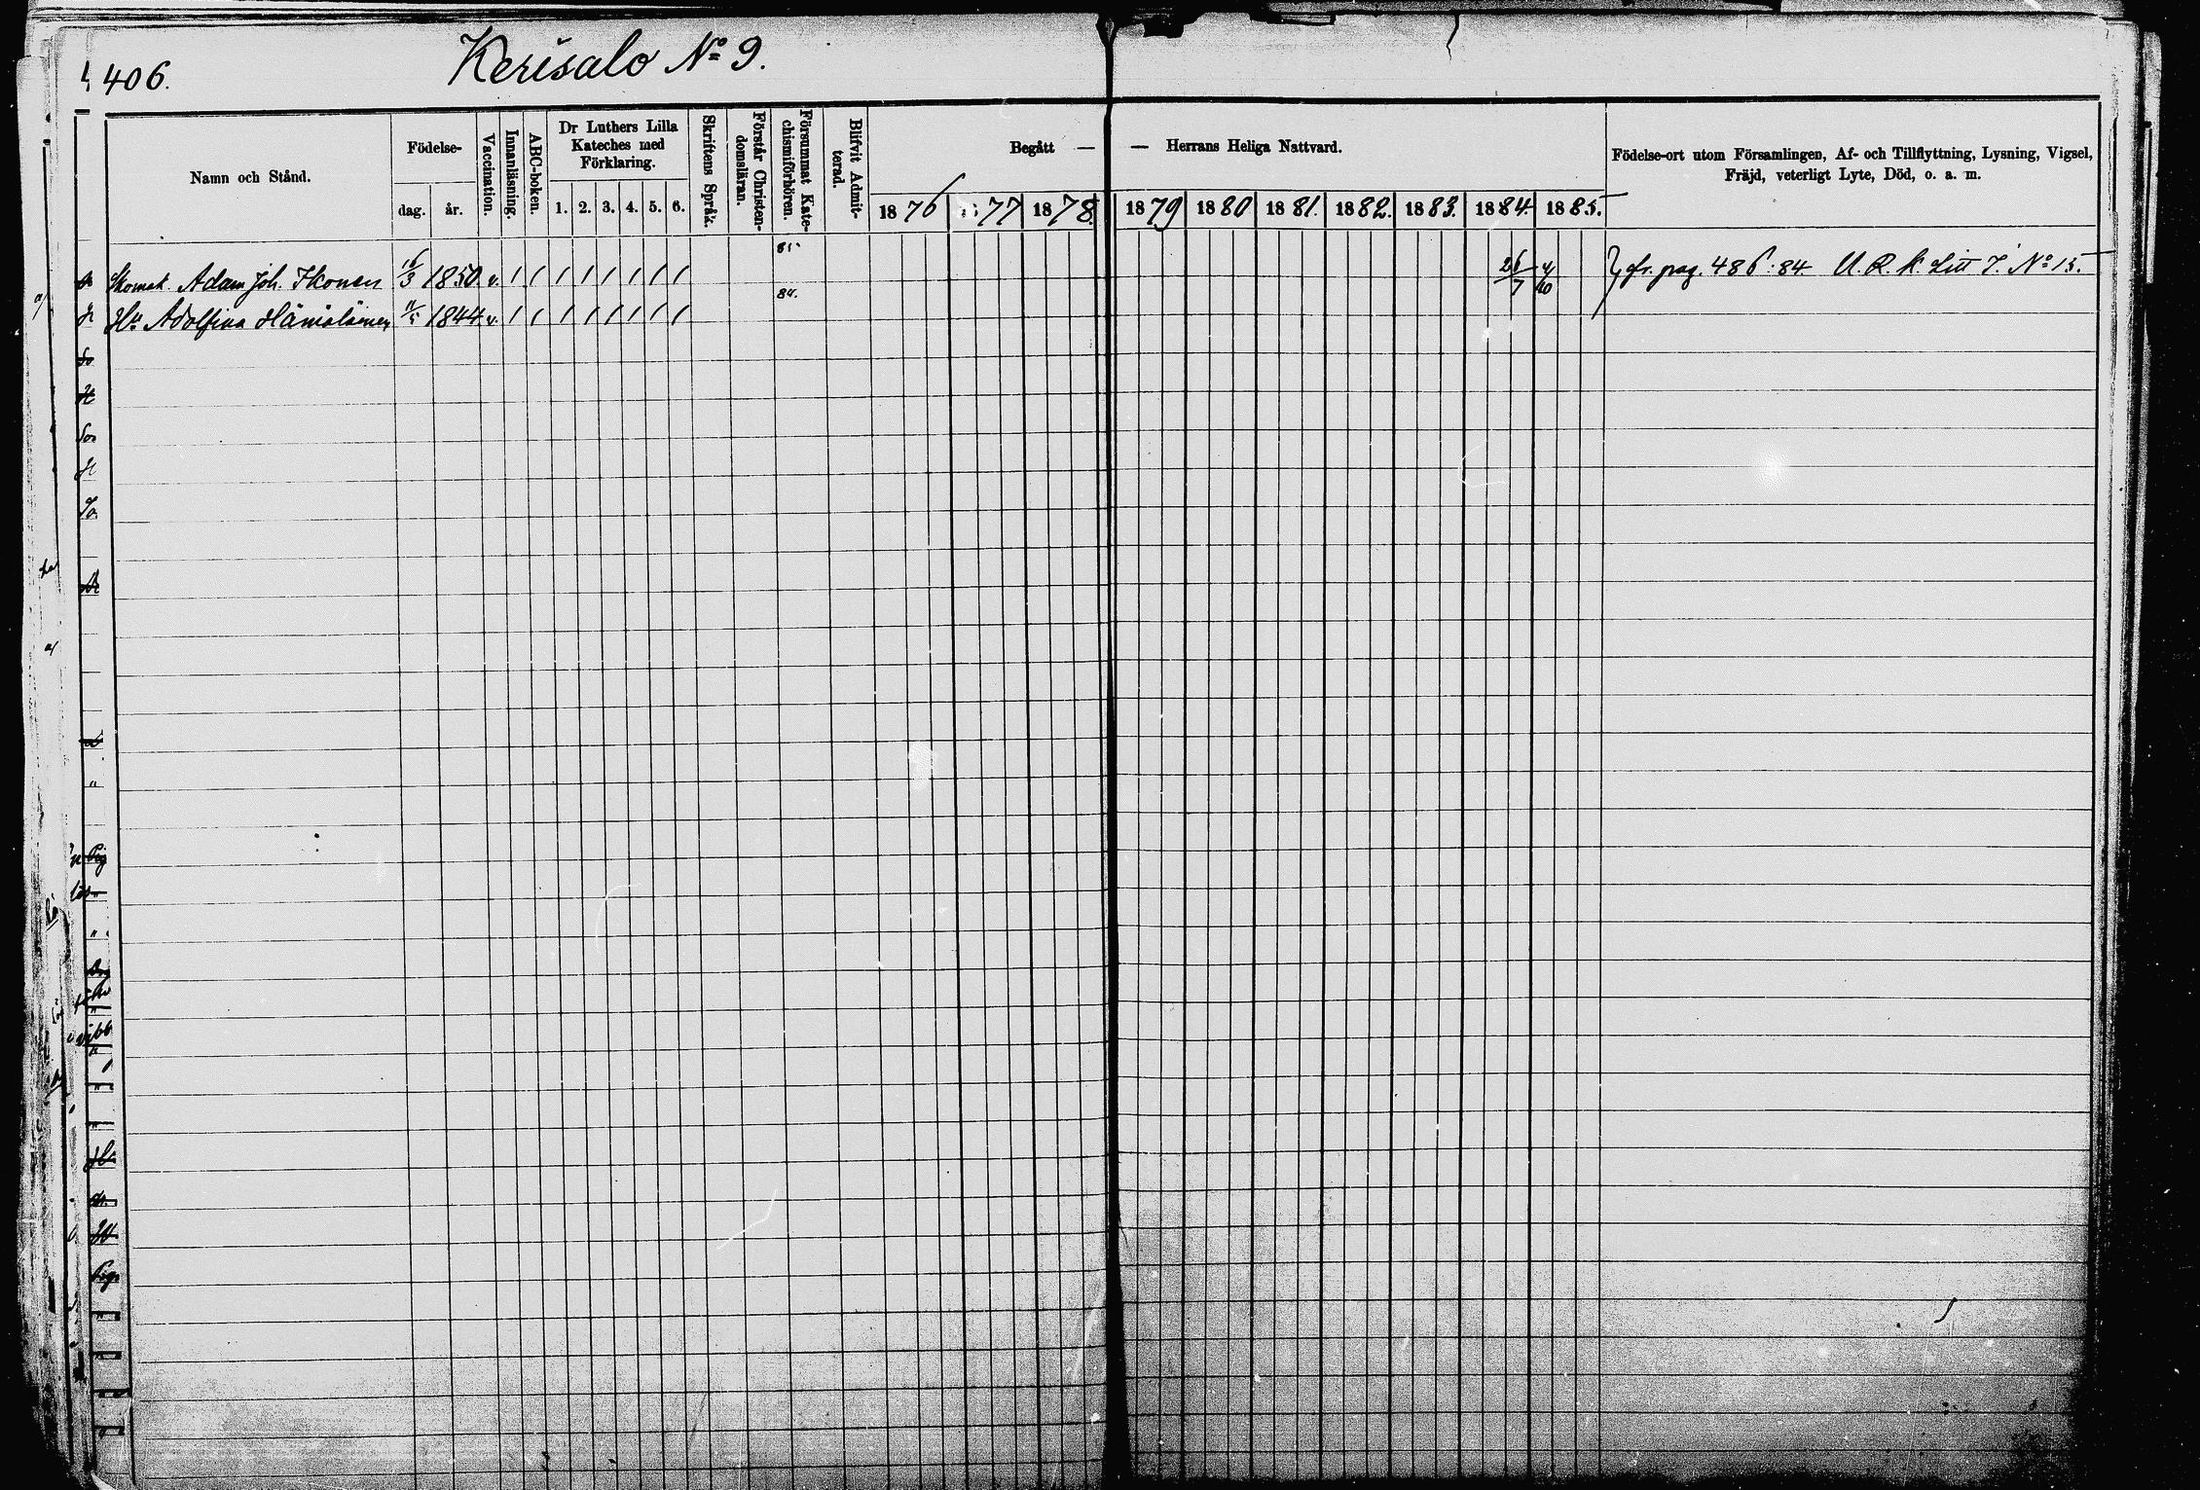 406.
Kerisalo Nº 9.
Namn och Stånd.
Födelse-
dag.
år.
Vaccination.
Innanläsning.
ABC-boken.
Dr Luthers Lilla
Kateches med
Förklaring.
1. 2. 3. 4. 5. 6.
Skriftens Språk.
Förstår Christen-
domsläran.
Försummat Kate-
chismiförhören.
Blifvit Admit-
terad.
Begått — — Herrans Heliga Nattvard.
1876 1877 1878. 1879 1880 1881. 1882. 1883. 1884. 1885.
Födelse-ort utom Församlingen, Af- och Tillflyttning, Lysning, Vigsel,
Fräjd, veterligt Lyte, Död, o. a. m.
85.
Skomak. Adam Joh. Ikonen 16/3 1850. v. / / / / / / / / 26/7 4/10 fr. pag. 486:84 U. R. k. Litt I. Nº 15.
84.
Hu Adolfina Hämäläinen 11/5 1844. v. / / / / / / / /